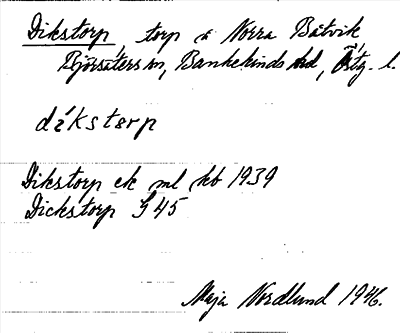 Dikstorp, torp å Norra Båtvik
Björsäters sn, Bankekinds hd, Östg. l.
díkstɵrp
Dikstorp ek ml kb 1939
Dickstorp G 45
Maja Nordlund 1946.